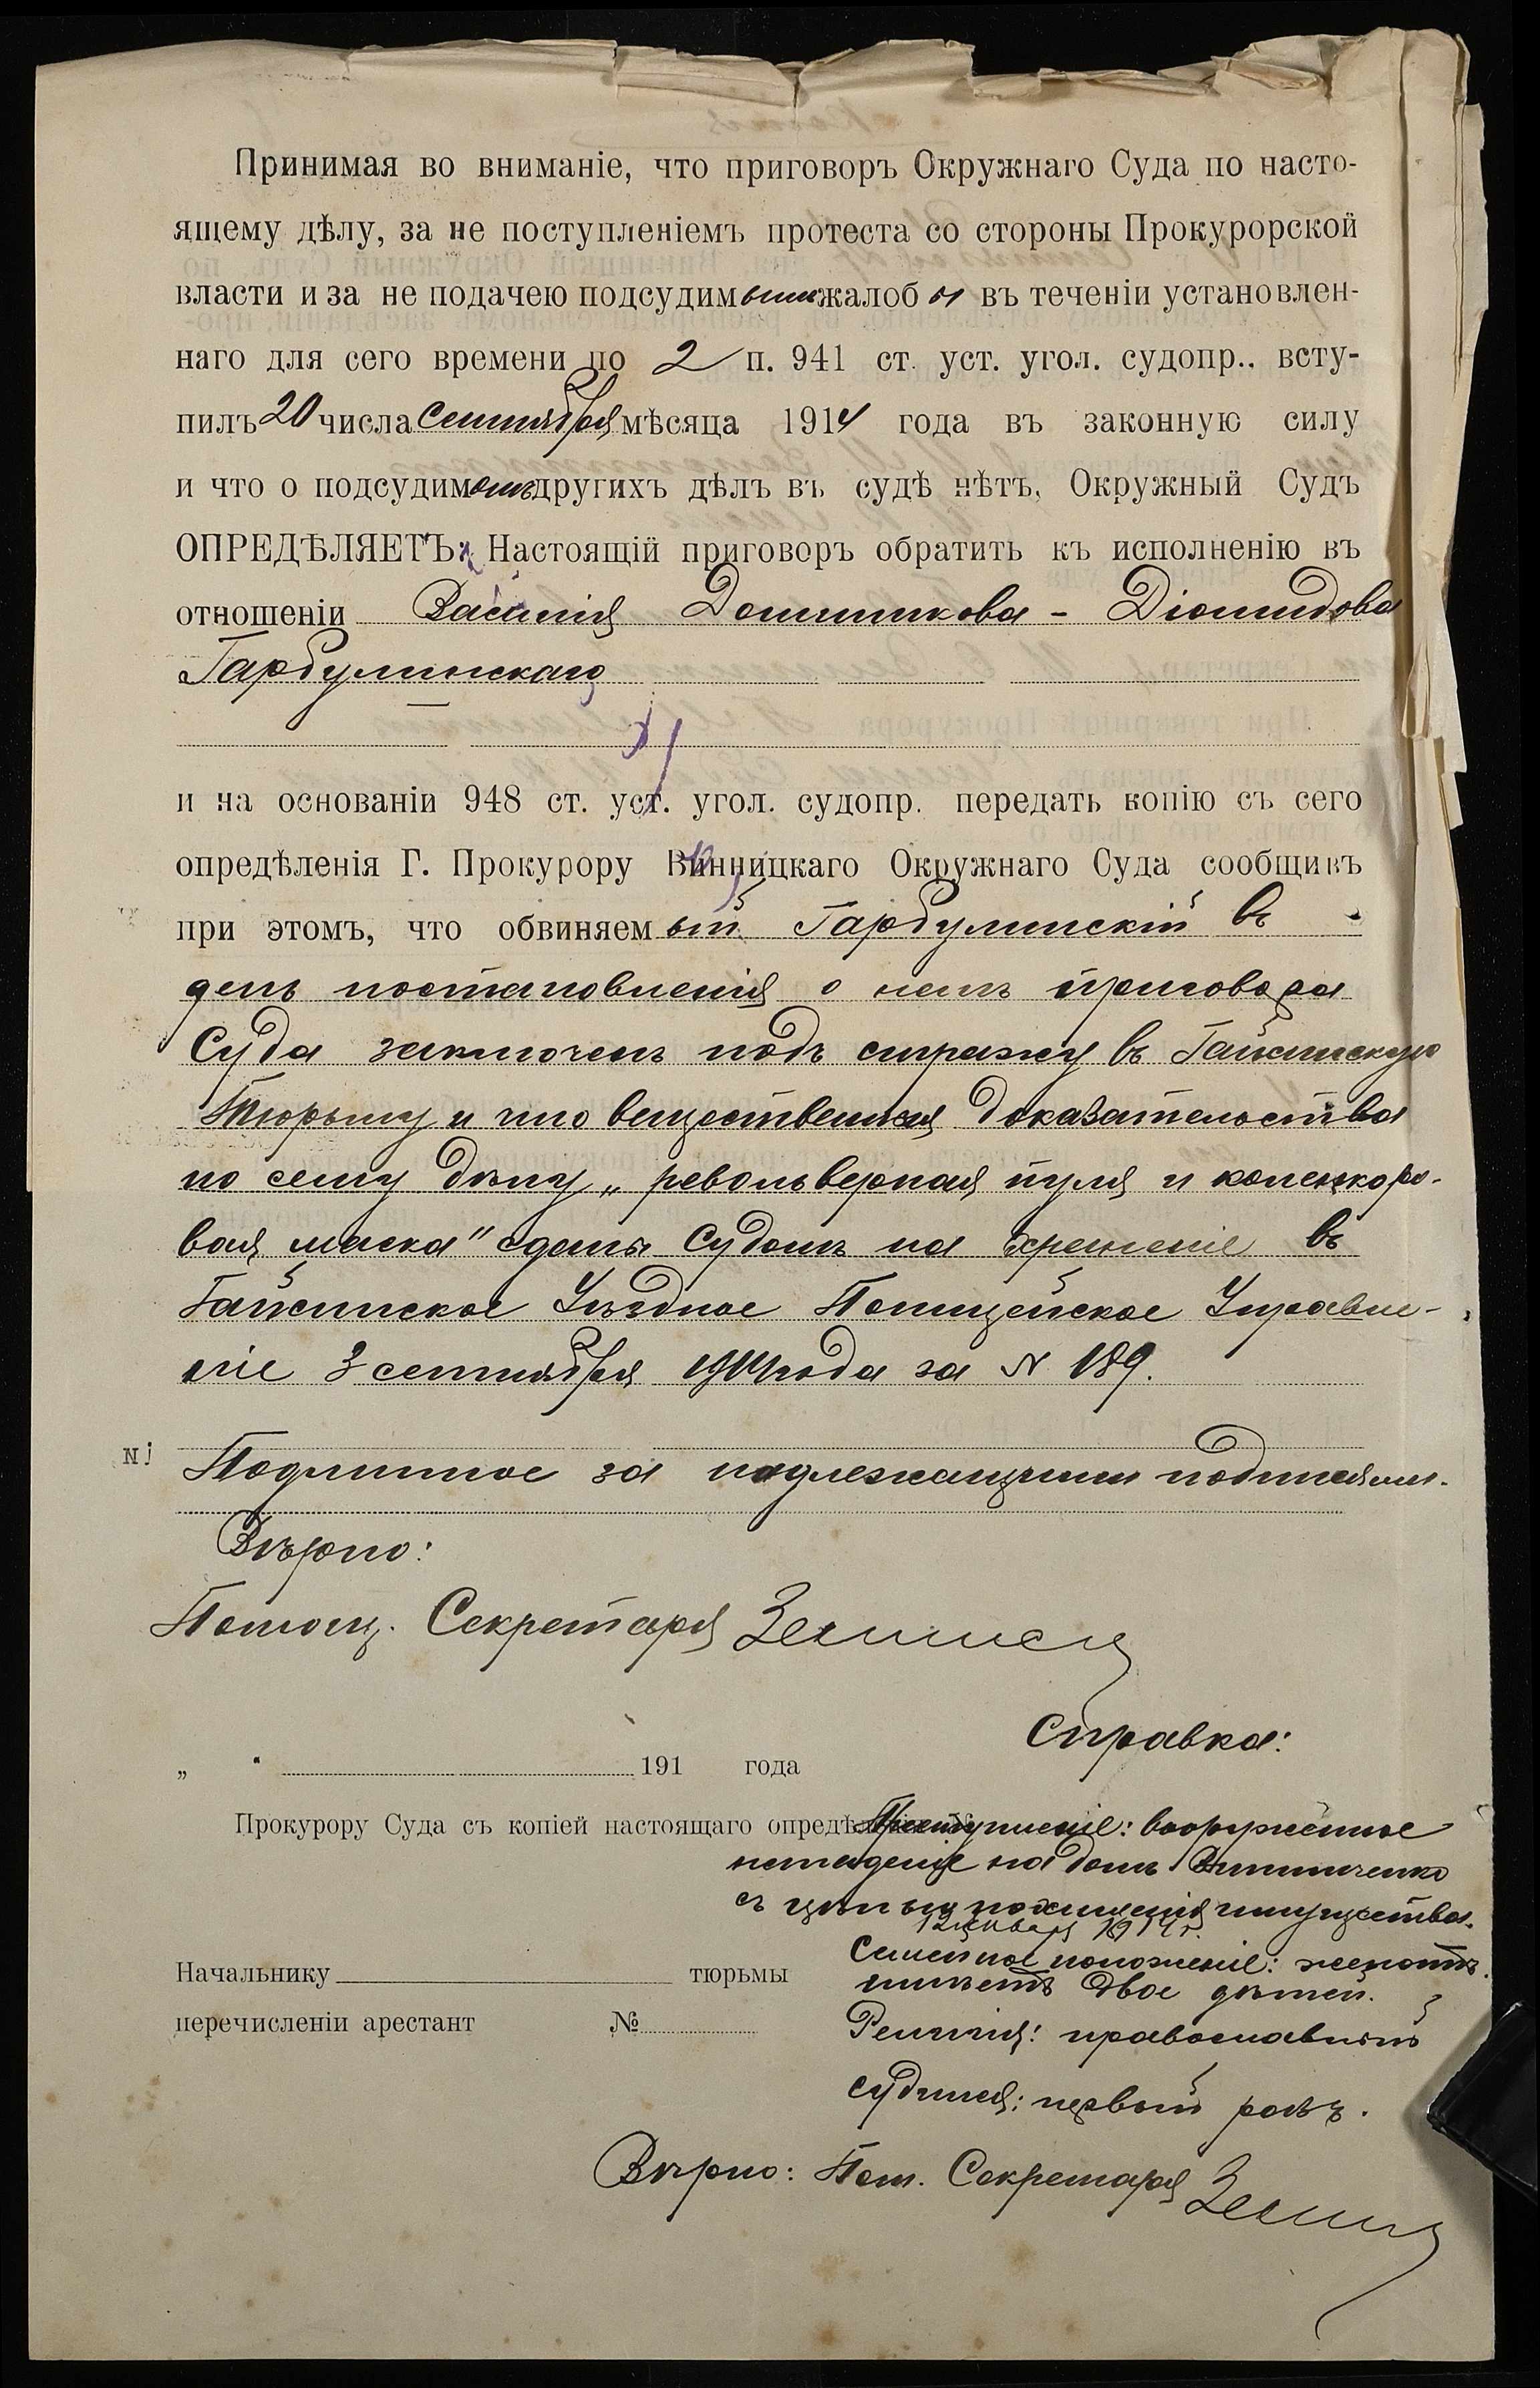 Принимая во вниманіе, что приговоръ Окружнаго Суда по насто-
ящему дѣлу, за не поступленіемъ протеста со стороны Прокурорской
власти и за не подачею подсудимымъ жалобы въ теченіи установлен-
наго для сего времени по 2 п. 941 ст. уст. угол. судопр.. всту-
пилъ 20 числа сентября мѣсяца 1914 года въ законную силу
и что о подсудимомъ другихъ дѣлъ въ судѣ нѣтъ, Окружный Судъ
ОПРЕДѢЛЯЕТЪ: Настоящій приговоръ обратить къ исполненію въ
отношеніи Василія Доминикова - Діомидова
Гарбулинскаго
и на основаніи 948 ст. уст. угол. судопр. передать копію съ сего
опредѣленія Г. Прокурору Винницкаго Окружнаго Суда сообщивъ
при этомъ, что обвиняемый Гарбулинскій въ
день постановленія о немъ приговора
Суда заключенъ подъ стражу въ Гайсинскую
Тюрьму и что вещественныя доказательства
по сему дѣлу „револьверная пуля и коленкоро-
вая маска" сданы Судомъ на храненіе въ
Гайсинское Уѣздное Полицейское Управле-
ніе 3 сентября 1914 года за N 189.
Подлинное за надлежащими подписями.
Вѣрно:
Помощ. Секретаря
Справка:
„ " 191 года
Прокурору Суда съ копіей настоящаго
Преступленіе: вооруженное
нападеніе на домъ Винниченко
съ цѣлью похищенія имущества.
12 января 1914 г.
Семейное положеніе: женатъ.
имѣетъ двое дѣтей.
Начальнику тюрьмы
перечисленіи арестант №
Религія: православный
судился: первый разъ.
Вѣрно: Пом. Секретаря